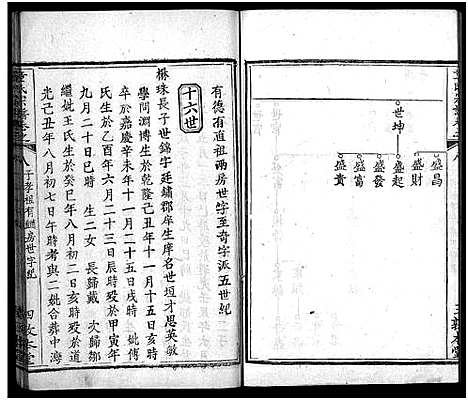 世坤
盛昌
盛財
盛起
盛發
盛富
盛貴
有德有直祖兩房世字至奇字派五世紀
十六世
楙珠長子世錦字廷鏽郡庠生庠名世垣才思英敏
學問淵博生於乾隆己丑年十一月十五日亥時
卒於嘉慶辛未年十一月二十五日戌時 妣傅
氏生於乙酉年六月二十三日辰時歿於甲寅年
九月二十日巳時 生二女 長歸戴 次歸鄒
繼妣王氏生於癸巳年八月初二日亥時歿於道
光己丑年八月初七日午時考與二妣合葬中灣
八
子孝祖有繼房世字紀
四